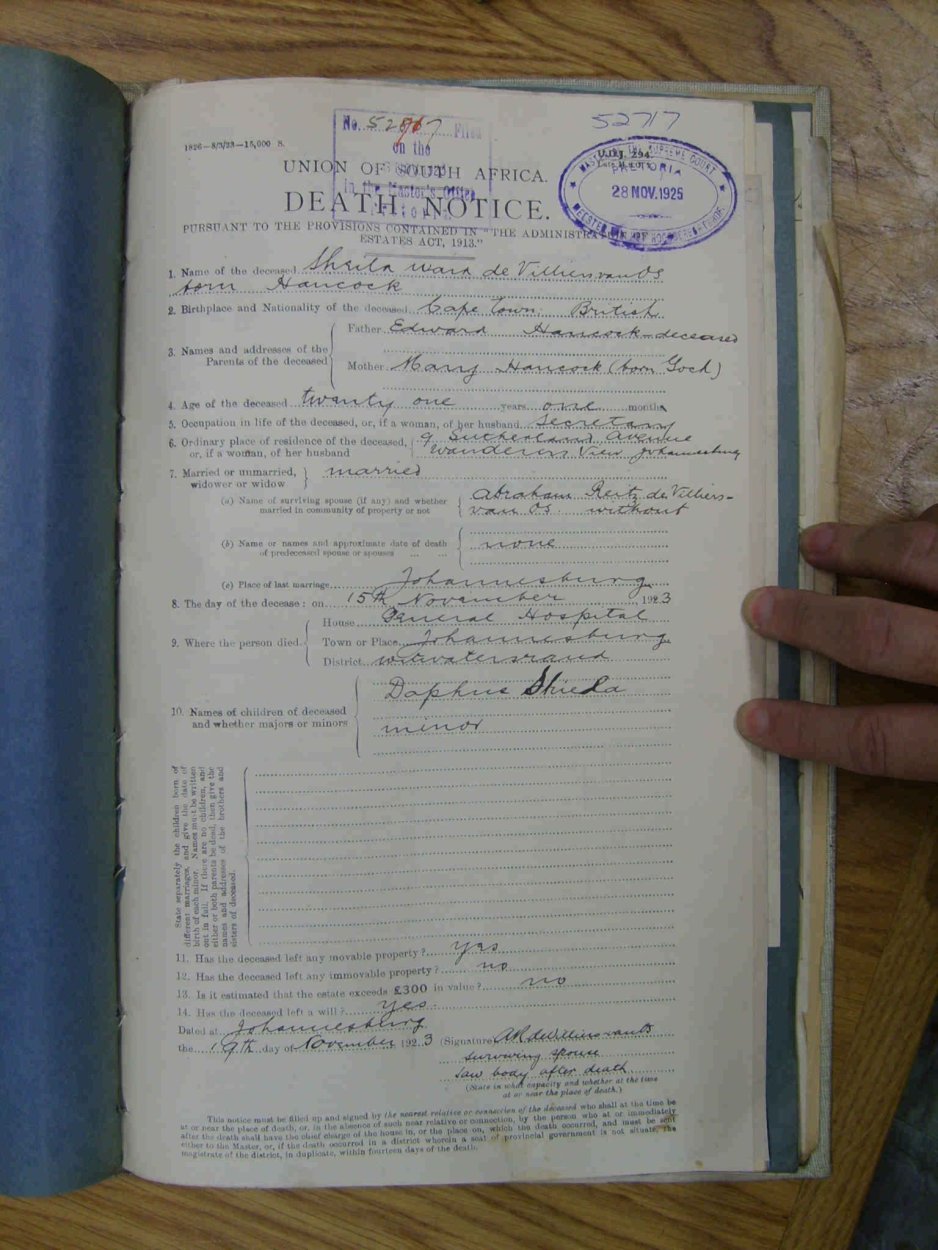 52717
No. 52717 Filed
on the
In the Master's Office
1826—8/3/23—15,000 S.
U.D.J. 294.
MASTER OF THE SUPREME COURT
PRETORIA
28 NOV. 1925
UNION OF SOUTH AFRICA.
DEATH NOTICE.
PURSUANT TO THE PROVISIONS CONTAINED IN "THE ADMINISTRATION
ESTATES ACT, 1913."
1. Name of the deceased Sheila Ward de Villiers van Os
born Hancock
2. Birthplace and Nationality of the deceased Cape Town. British
3. Names and addresses of the Parents of the deceased
Father Edward Hancock – deceased
Mother Mary Hancock (born Goch)
4. Age of the deceased twenty one years one months
5. Occupation in life of the deceased, or, if a woman, of her husband Secretary
6. Ordinary place of residence of the deceased, 9 Sutherland Avenue
or, if a woman, of her husband Wanderers View Johannesburg
7. Married or unmarried, widower or widow married
(a) Name of surviving spouse (if any) and whether Abraham Reitz de Villiers-
married in community of property or not van Os without
(b) Name or names and approximate date of death
of predeceased spouse or spouses ... ... none
(c) Place of last marriage Johannesburg
8. The day of the decease: on 15th November 1923
9. Where the person died
House General Hospital
Town or Place Johannesburg
District Witwatersrand
10. Names of children of deceased
and whether majors or minors
Daphne Shiela
minor
State separately the children born of
different marriages, and give the date of
birth of each minor. Names must be written
out in full. If there are no children, and
either or both parents be dead, then give the
names and addresses of the brothers and
sisters of deceased.
11. Has the deceased left any movable property? yes
12. Has the deceased left any immovable property? no
13. Is it estimated that the estate exceeds £300 in value? no
14. Has the deceased left a will? yes
Dated at Johannesburg
the 19th day of November 1923 (Signature) AR de Villiers van Os
surviving spouse
saw body after death
(State in what capacity and whether at the time
at or near the place of death.)
This notice must be filled up and signed by the nearest relative or connection of the deceased who shall at the time be
at or near the place of death, or, in the absence of such near relative or connection, by the person who at or immediately
after the death shall have the chief charge of the house in, or the place on, which the death occurred, and must be sent
either to the Master, or, if the death occurred in a district wherein a seat of provincial government is not situate, the
magistrate of the district, in duplicate, within fourteen days of the death.